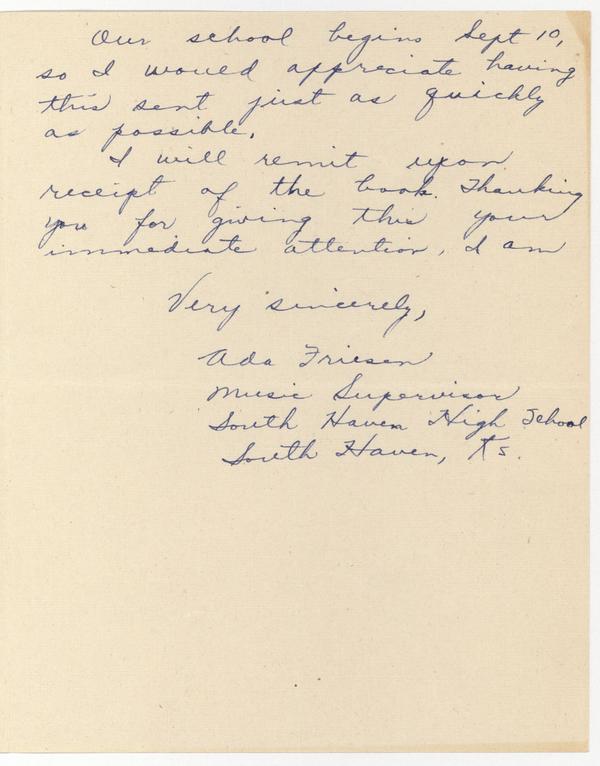 Our school begins Sept 10,
so I would appreciate having
this sent just as quickly
as possible.
I will remit upon
receipt of the book. Thanking
you for giving this your
immediate attention, I am
Very sincerely,
Ada Friesen
Music Supervisor
South Haven High School
South Haven, Ks.